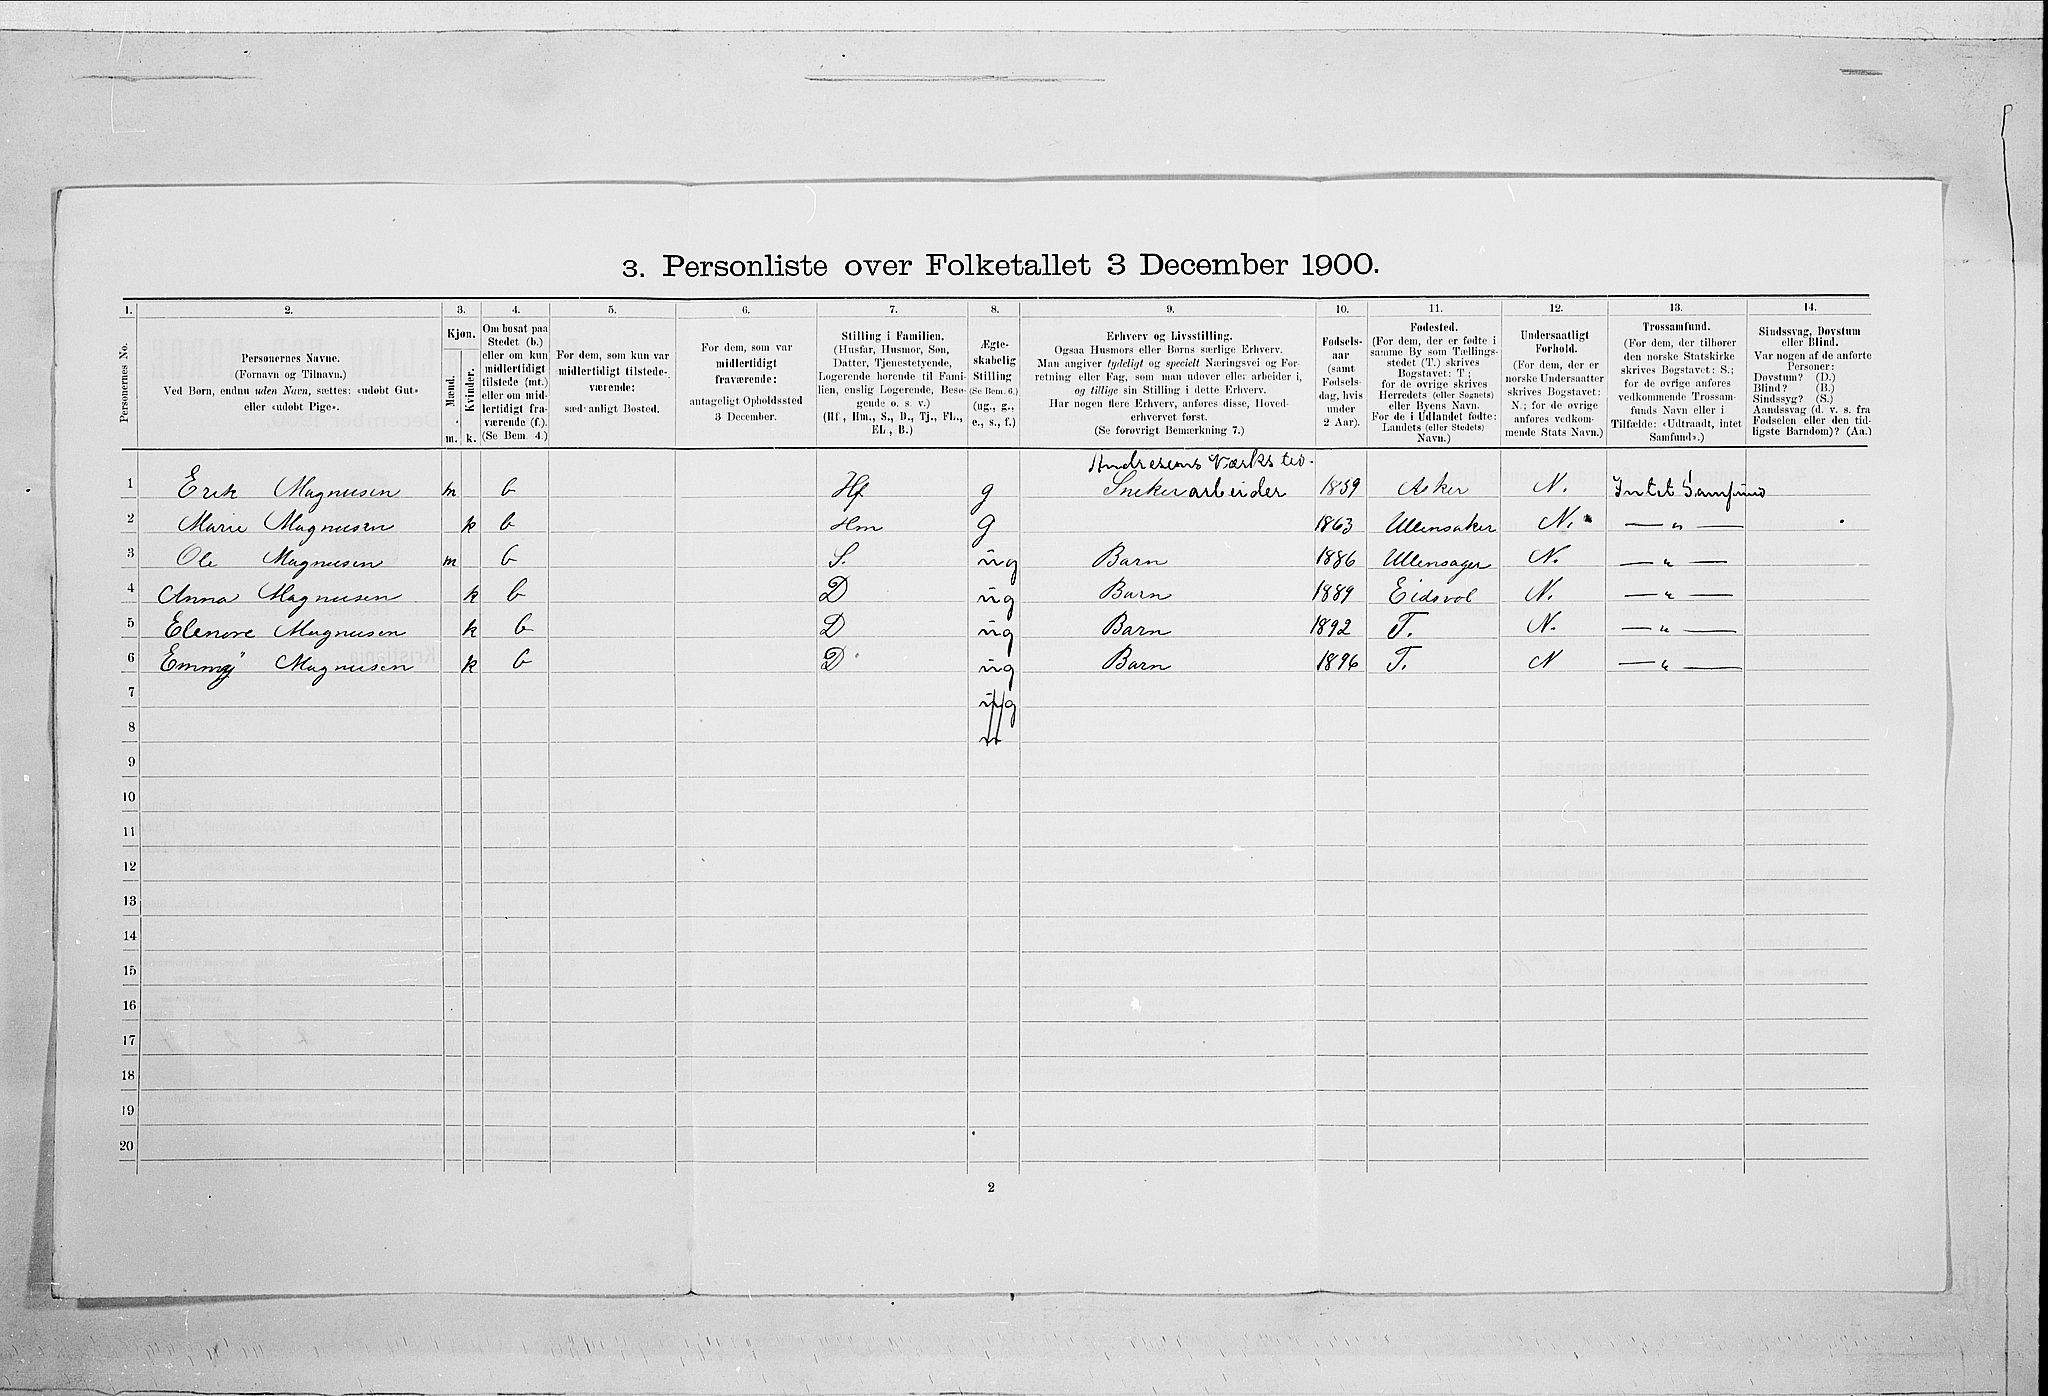 3. Personliste over Folketallet 3 December 1900.
1. 2. 3. 4. 5. 6. 7. 8. 9. 10. 11. 12. 13. 14.
Personernes No.
Personernes Navne.
(Fornavn og Tilnavn.)
Ved Børn, endnu uden Navn, sættes: «udøbt Gut»
eller «udøbt Pige».
Kjøn.
Mænd.
Kvinder.
m. k.
Om bosat paa
Stedet (b.)
eller om kun
midlertidigt
tilstede (mt.)
eller om mid-
lertidigt fra-
værende (f.).
(Se Bem. 4.)
For dem, som kun var
midlertidigt tilstede-
værende:
sædvanligt Bosted.
For dem, som var
midlertidigt
fraværende:
antageligt Opholdssted
3 December.
Stilling i Familien.
(Husfar, Husmor, Søn,
Datter, Tjenestetyende,
Logerende hørende til Fami-
lien, enslig Logerende, Besø-
gende o. s. v.)
(Hf., Hm., S., D., Tj., FL.,
EL., B.)
Ægte-
skabelig
Stilling
(Se Bem. 6.)
(ug., g.,
e., s., f.)
Erhverv og Livsstilling.
Ogsaa Husmors eller Børns særlige Erhverv.
Man angiver tydeligt og specielt Næringsvei og For-
retning eller Fag, som man udøver eller arbeider i,
og tillige sin Stilling i dette Erhverv.
Har nogen flere Erhverv, anføres disse, Hoved-
erhvervet først.
(Se forøvrigt Bemærkning 7.)
Fødsels-
aar
(samt
Fødsels-
dag, hvis
under
2 Aar).
Fødested.
(For dem, der er fødte i
samme By som Tællings-
stedet (T.) skrives
Bogstavet: T;
for de øvrige skrives
Herredets (eller Sognets)
eller Byens Navn.
For de i Udlandet fødte:
Landets (eller Stedets)
Navn.)
Undersaatligt
Forhold.
(For dem, der er
norske Undersaatter
skrives Bogstavet:
N.; for de øvrige
anføres vedkom-
mende Stats Navn.)
Trossamfund.
(For dem, der tilhører
den norske Statskirke
skrives Bogstavet: S.;
for de øvrige anføres
vedkommende Trossam-
funds Navn eller i
Tilfælde: «Udtraadt, intet
Samfund».)
Sindssvag, Døvstum
eller Blind.
Var nogen af de anførte
Personer:
Døvstum? (D.)
Blind? (B.)
Sindssyg? (S.)
Aandssvag (d. v. s. fra
Fødselen eller den tid-
ligste Barndom)? (Aa.)
Andresens Værksted.
1 Erik Magnusen m b Hf g Snekerarbeider 1859 Asker N. Intet Samfund
2 Marie Magnusen k b Hm g 1863 Ullensaker N. — " —
3 Ole Magnusen m b S. ug Barn 1886 Ullensager N. — " —
4 Anna Magnusen k b D ug Barn 1889 Eidsvol N. — " —
5 Elenore Magnusen k b D ug Barn 1892 T. N. — " —
6 Emmy Magnusen k b D ug Barn 1896 T. N — " —
7 ug
8
9
10
11
12
13
14
15
16
17
18
19
20
2